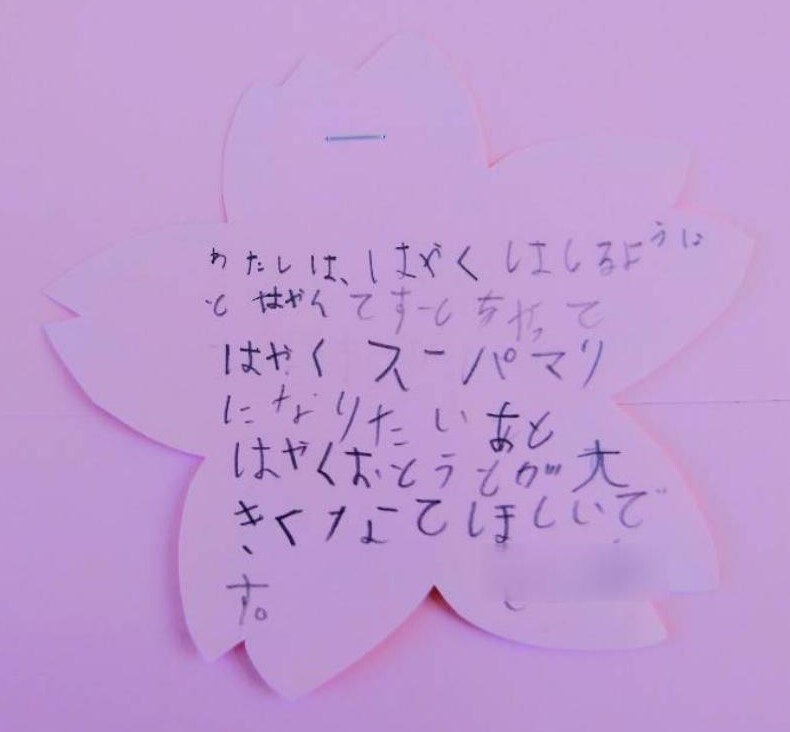 わたしは、はやく はしるように
と はやく てすーとちゃって
はやく スーパマリ
になりたい あと
はやくおとうとが大
きくなてほしいで
す。